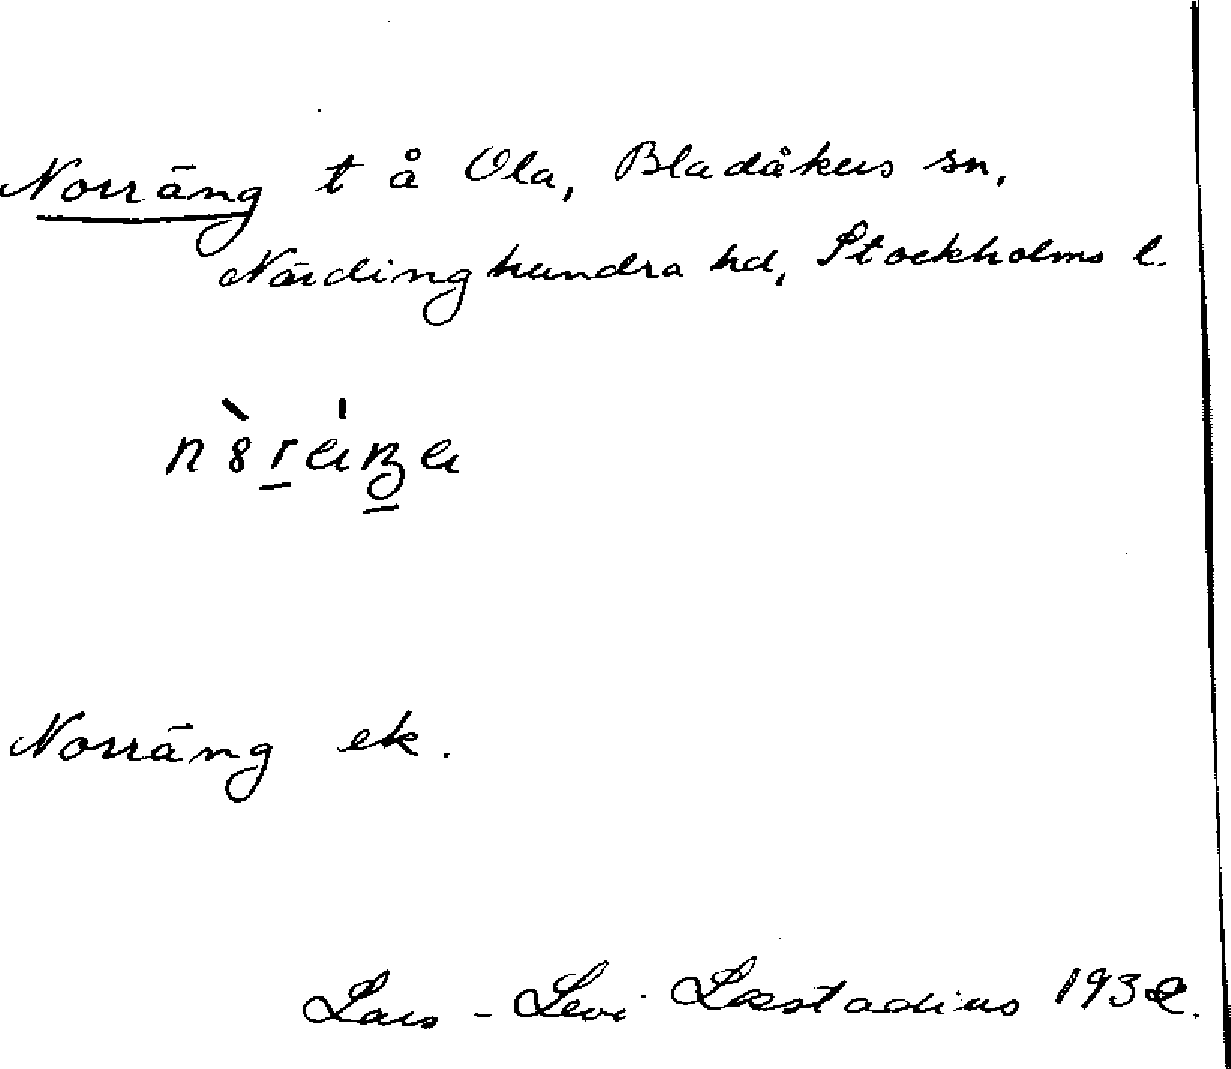 Norräng t å Ola, Bladåkers sn,
Närdinghundra hd, Stockholms l.
Norräng ek.
Lars-Levi Læstadius 1932.